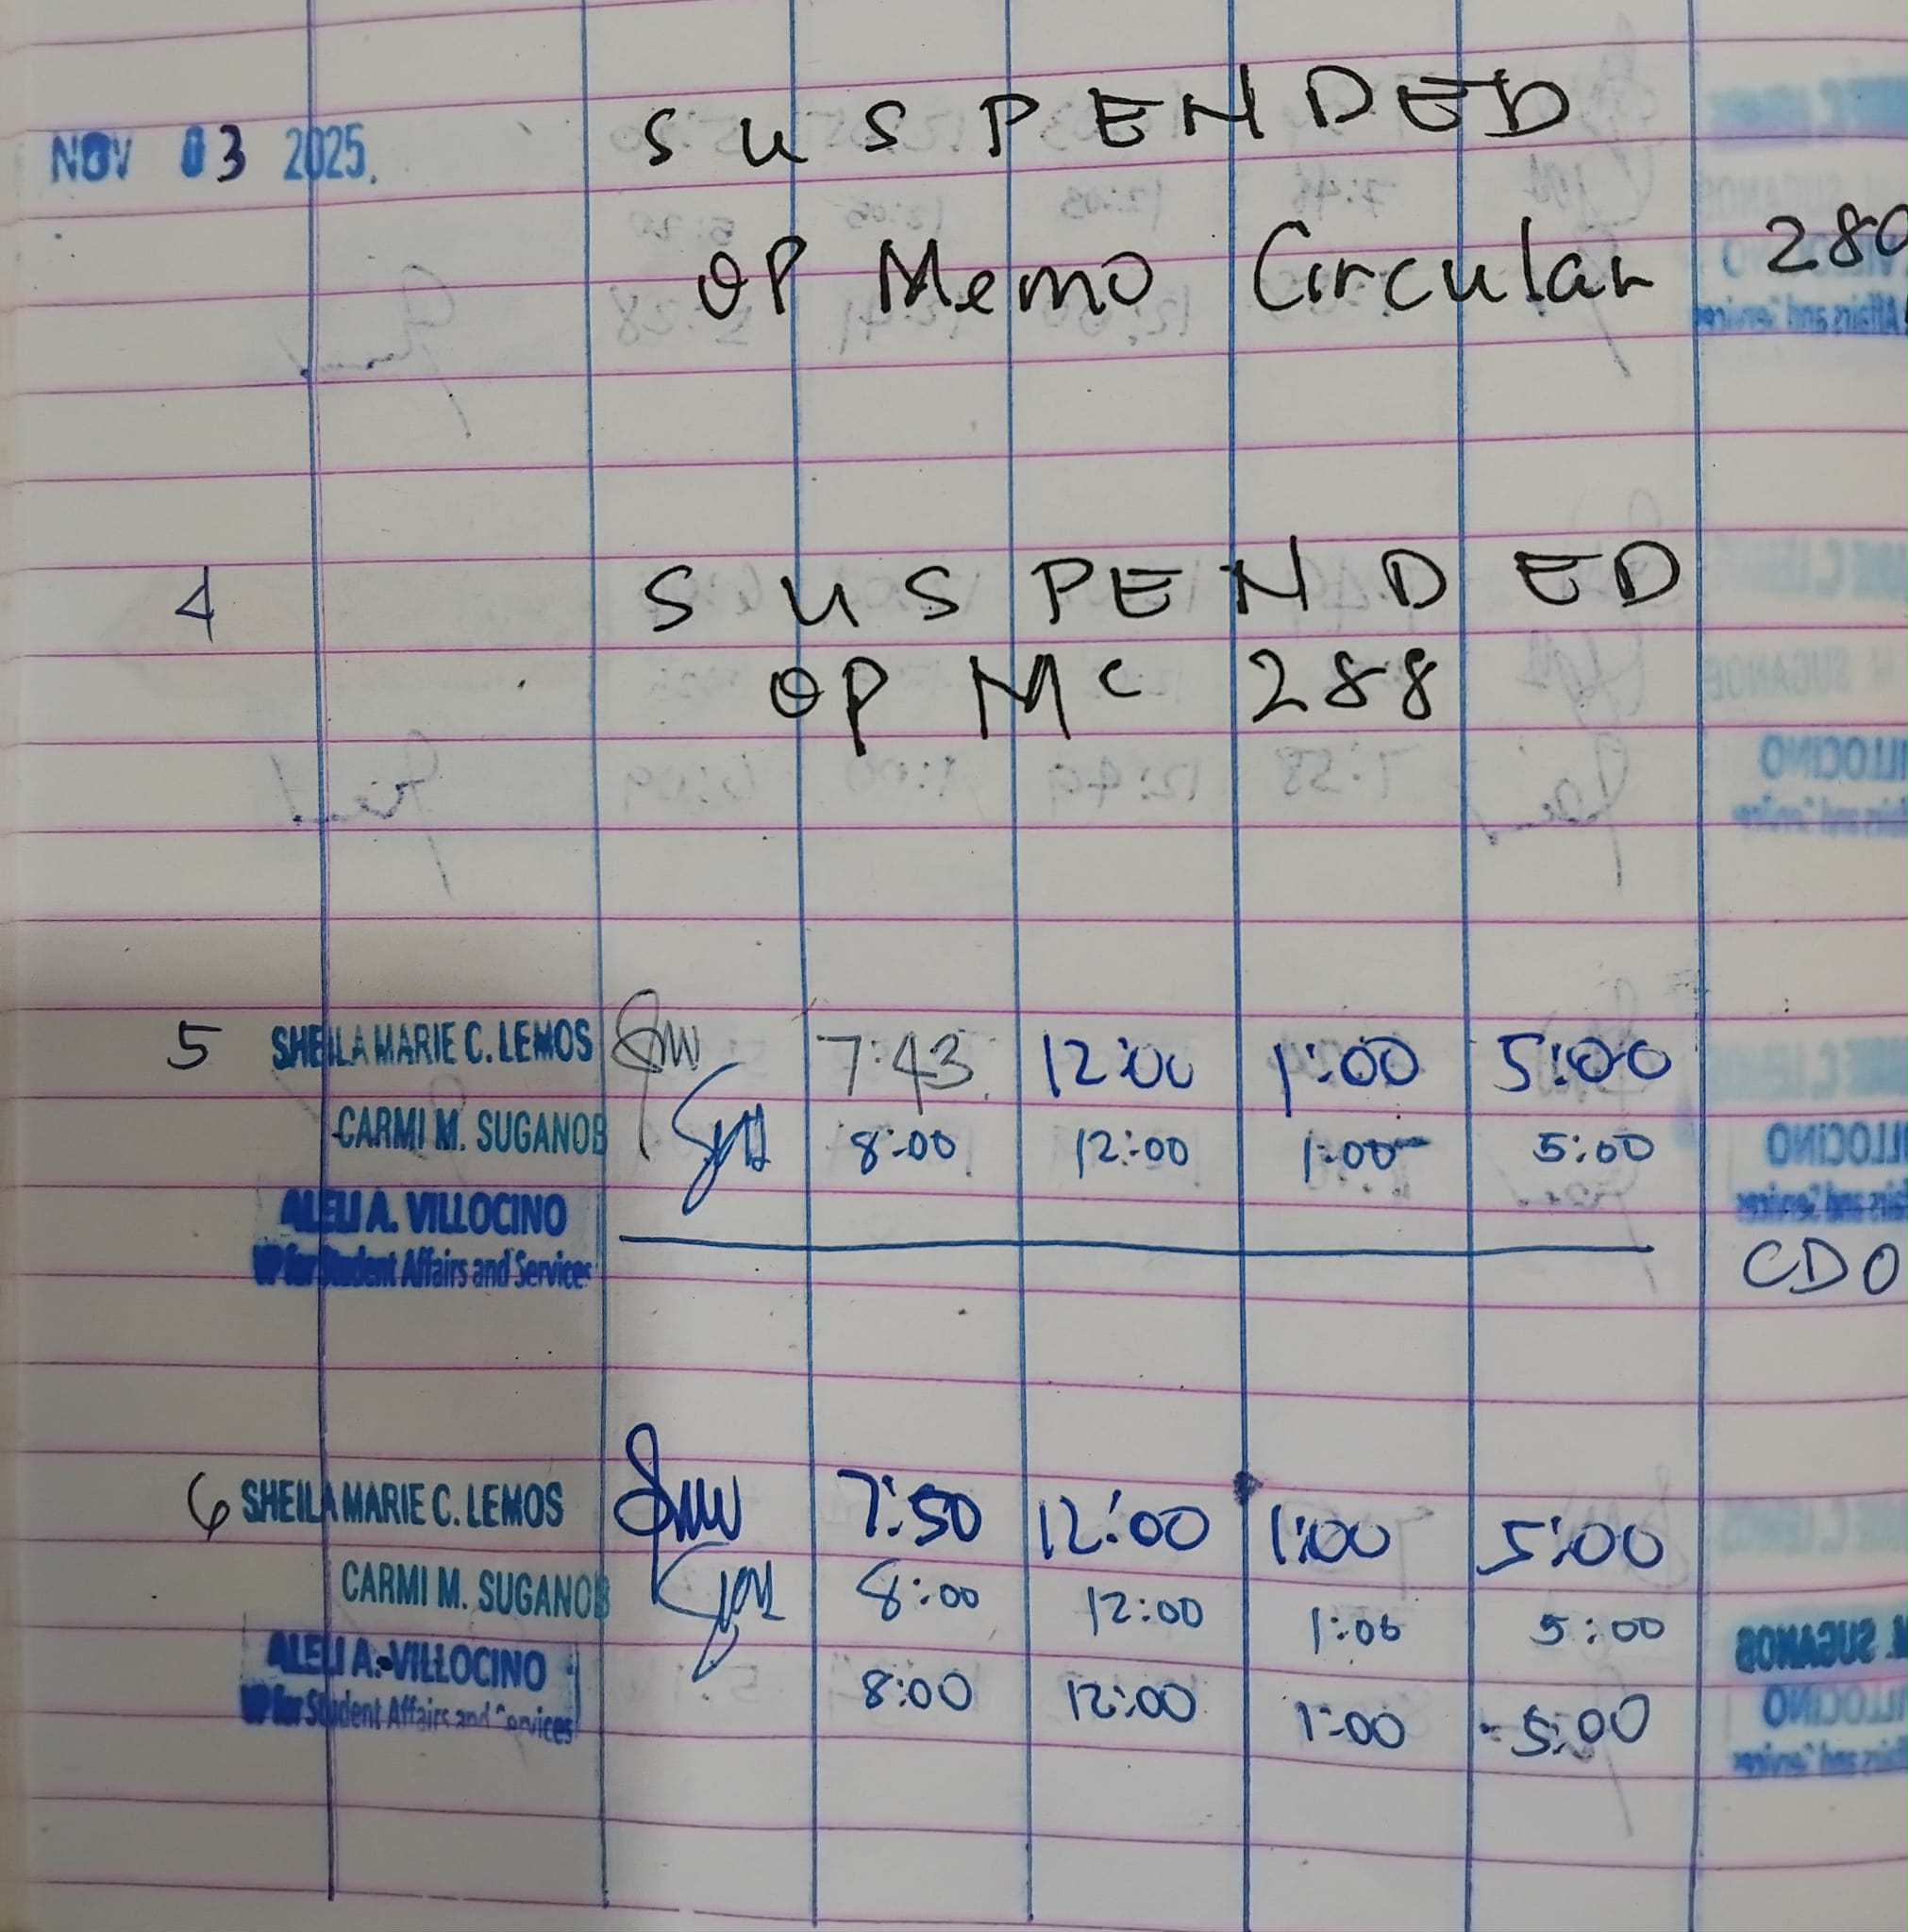 NOV 03 2025.
SUSPENDED
OP Memo Circular
4 SUSPENDED
OP MC 288
5 SHEILA MARIE C. LEMOS 7:43 12:00 1:00 5:00
CARMI M. SUGANOB 8:00 12:00 1:00 5:00
ALELI A. VILLOCINO
VP for Student Affairs and Services CDO
6 SHEILA MARIE C. LEMOS 7:50 12:00 1:00 5:00
CARMI M. SUGANOB 8:00 12:00 1:00 5:00
ALELI A. VILLOCINO 8:00 12:00 1:00 5:00
VP for Student Affairs and Services